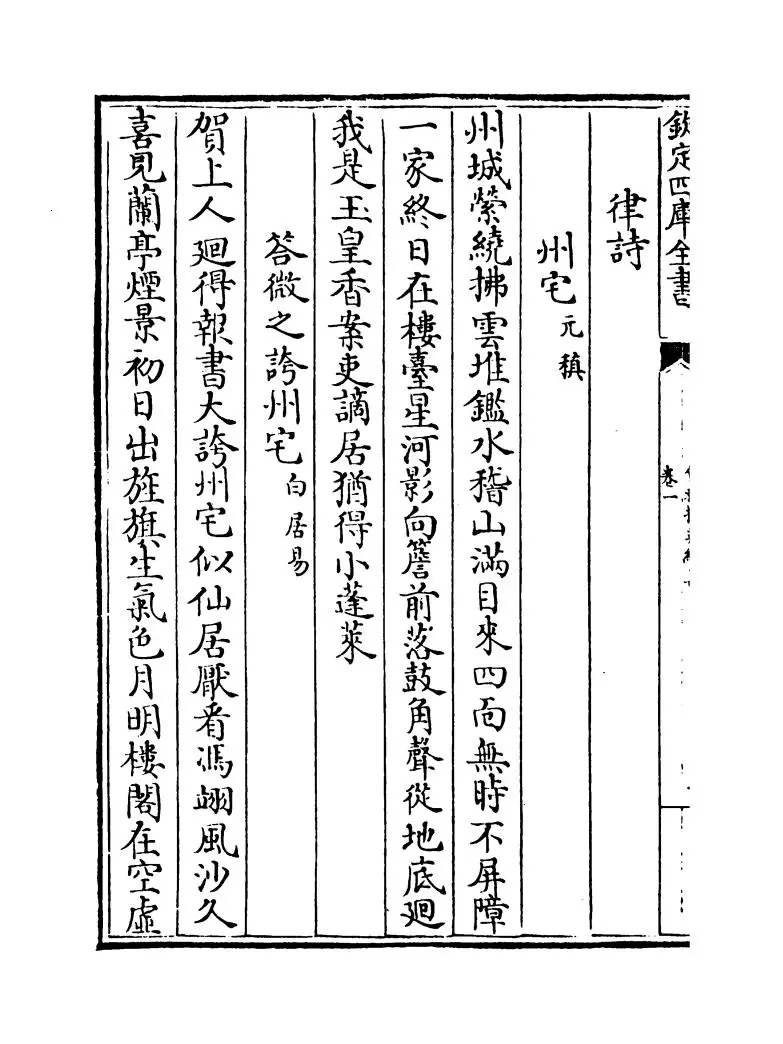 欽定四庫全書
卷一
律詩
州宅元稹
州城縈繞拂雲堆鑑水稽山滿目來四面無時不屏障
一家終日在樓臺星河影向簷前落鼓角聲從地底廻
我是玉皇香案吏謫居猶得小蓬萊
答微之誇州宅白居易
賀上人廻得報書大誇州宅似仙居厭看馮翊風沙久
喜見蘭亭煙景初日出旌旗生氣色月明樓閣在空虛